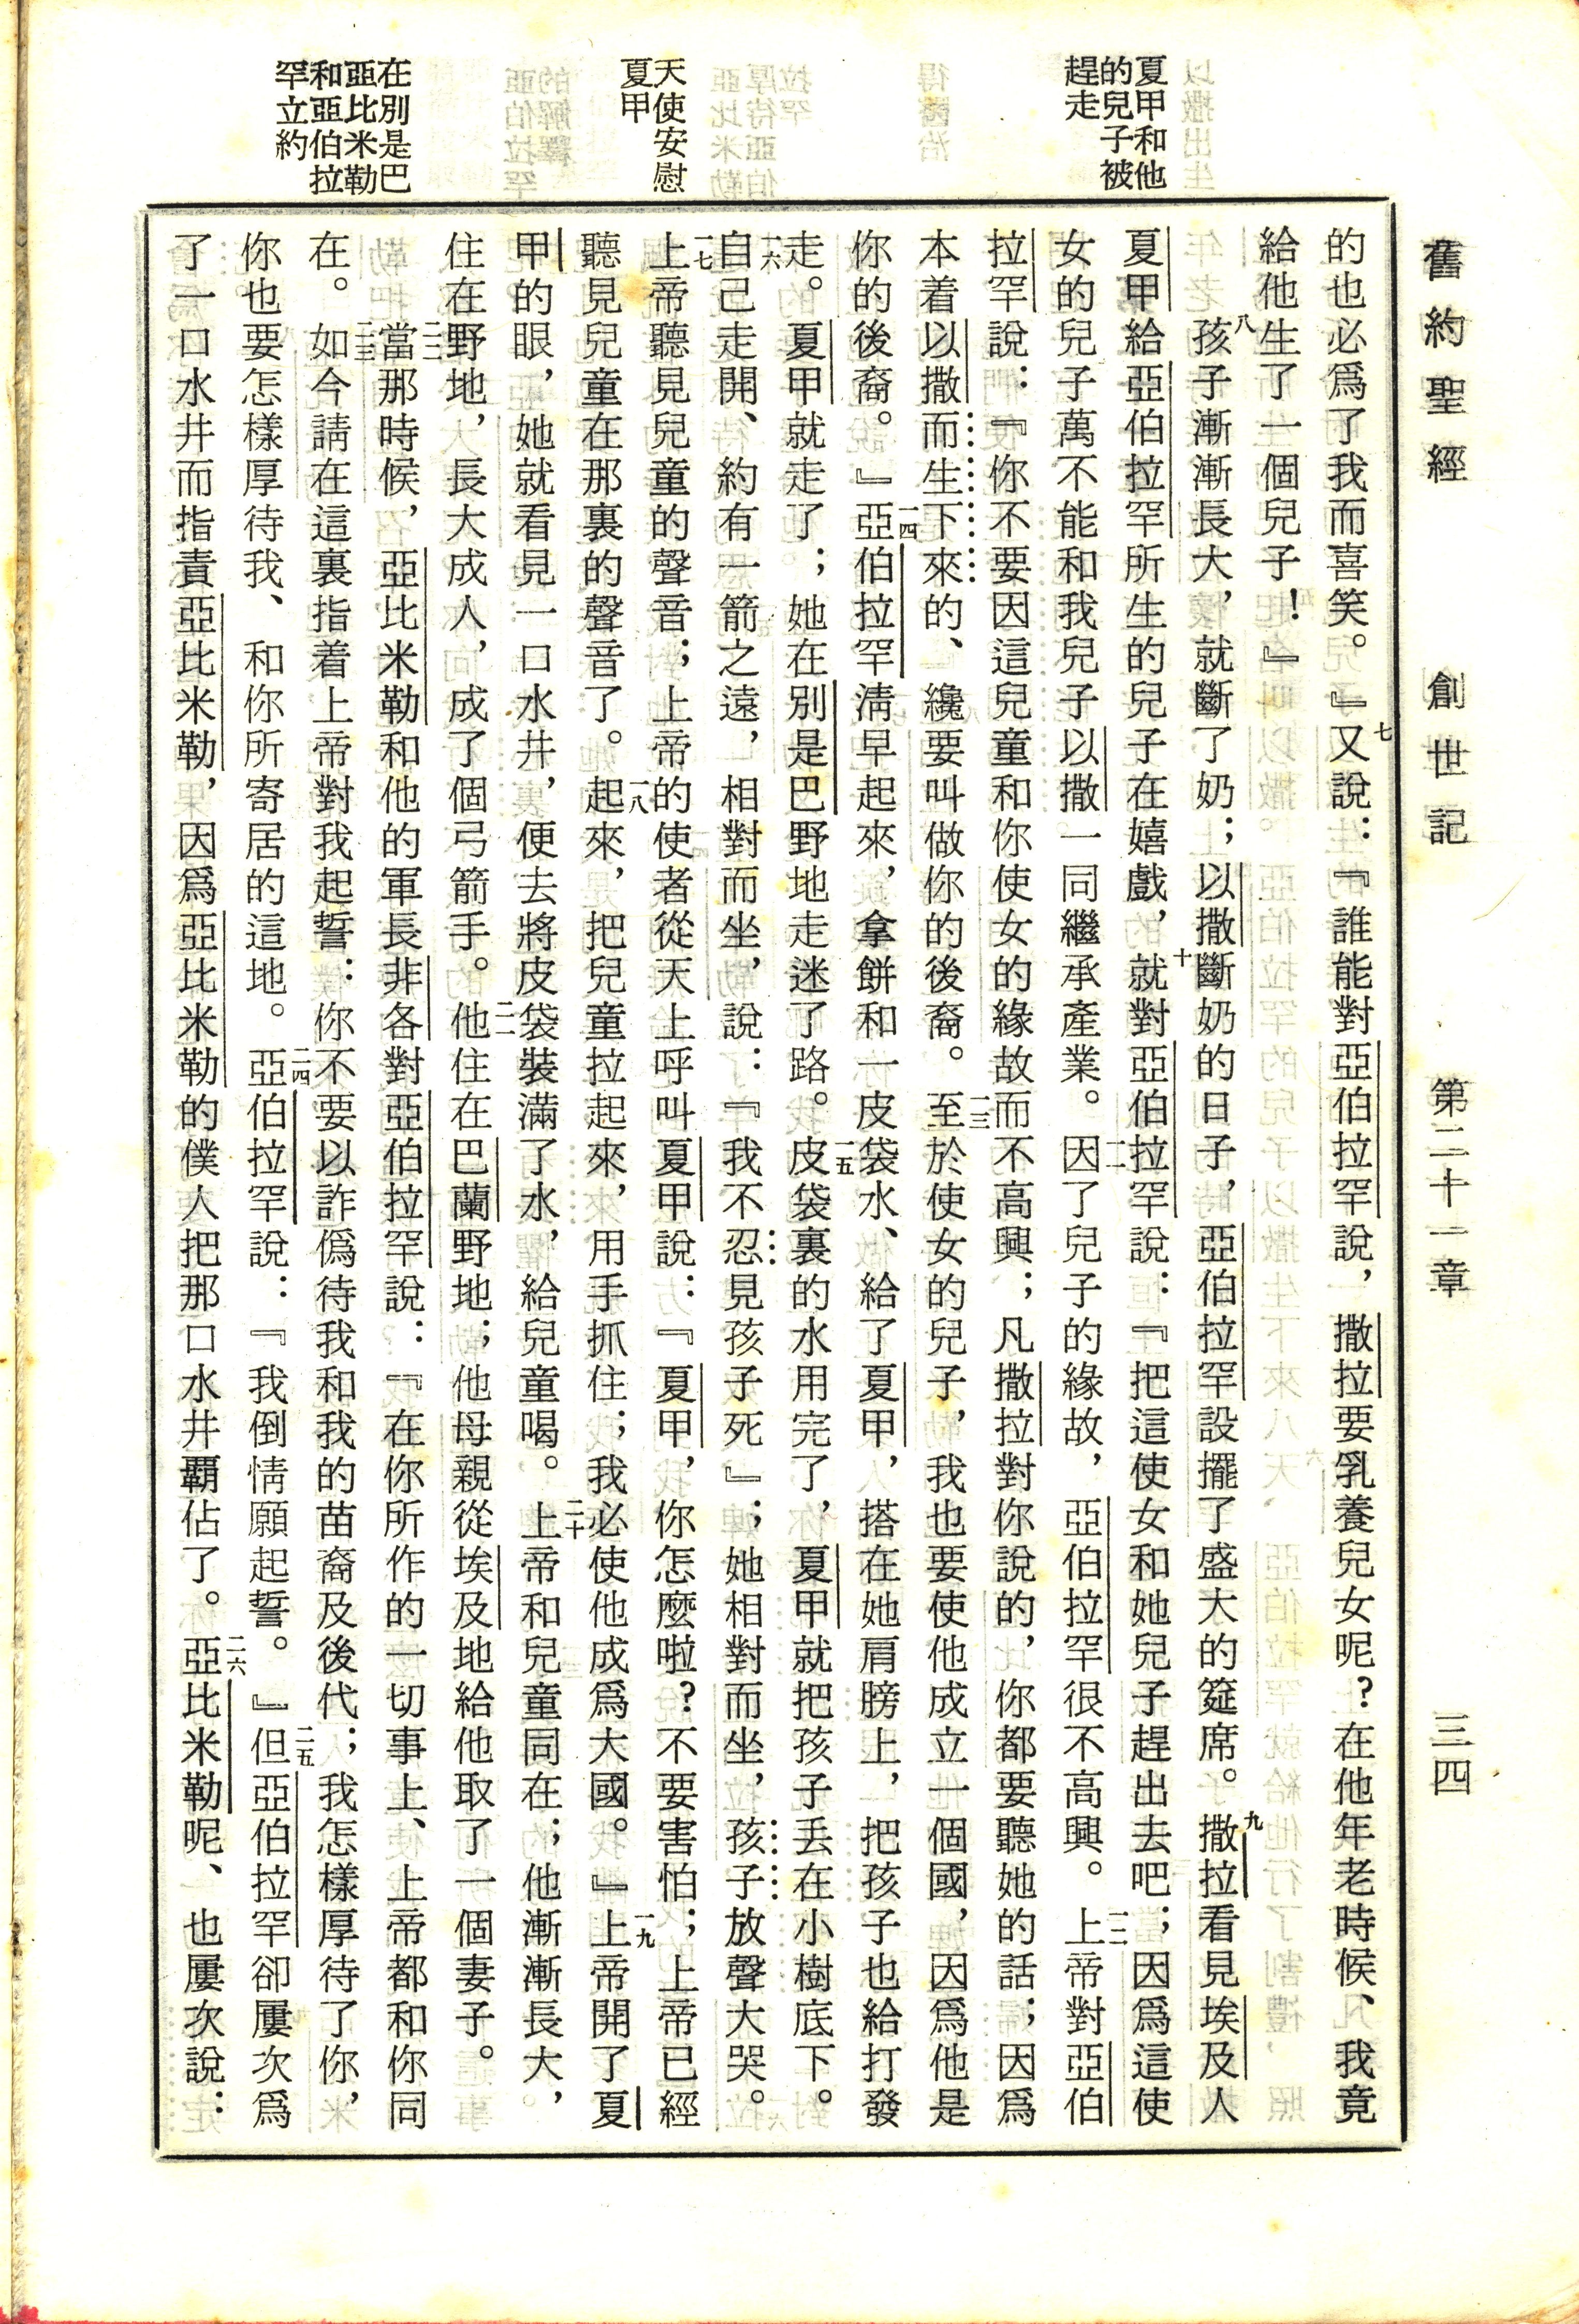 舊約聖經　創世記　第二十一章　三四
夏甲和他
的兒子被
趕走
天使安慰
夏甲
在別是巴
亞比米勒
和亞伯拉
罕立約
的也必爲了我而喜笑。』七又說：『誰能對亞伯拉罕說，撒拉要乳養兒女呢？在他年老時候、我竟
給他生了一個兒子！』
八孩子漸漸長大，就斷了奶；以撒斷奶的日子，亞伯拉罕設擺了盛大的筵席。九撒拉看見埃及人
夏甲給亞伯拉罕所生的兒子在嬉戲，十就對亞伯拉罕說：『把這使女和她兒子趕出去吧；因爲這使
女的兒子萬不能和我兒子以撒一同繼承產業。一一因了兒子的緣故，亞伯拉罕很不高興。一二上帝對亞伯
拉罕說：『你不要因這兒童和你使女的緣故而不高興；凡撒拉對你說的，你都要聽她的話；因爲
本着以撒而生下來的、纔要叫做你的後裔。一三至於使女的兒子，我也要使他成立一個國，因爲他是
你的後裔。』一四亞伯拉罕淸早起來，拿餅和一皮袋水、給了夏甲，搭在她肩膀上，把孩子也給打發
走。夏甲就走了；她在別是巴野地走迷了路。一五皮袋裏的水用完了，夏甲就把孩子丢在小樹底下。
一六自己走開、約有一箭之遠，相對而坐，說：『我不忍見孩子死』；她相對而坐，孩子放聲大哭。
一七上帝聽見兒童的聲音；上帝的使者從天上呼叫夏甲說：『夏甲，你怎麼啦？不要害怕；上帝已經
聽見兒童在那裏的聲音了。一八起來，把兒童拉起來，用手抓住；我必使他成爲大國。』一九上帝開了夏
甲的眼，她就看見一口水井，便去將皮袋裝滿了水，給兒童喝。二十上帝和兒童同在；他漸漸長大，
住在野地，長大成人，成了個弓箭手。二一他住在巴蘭野地；他母親從埃及地給他取了一個妻子。
二二當那時候，亞比米勒和他的軍長非各對亞伯拉罕說：『在你所作的一切事上、上帝都和你同
在。二三如今請在這裏指着上帝對我起誓：你不要以詐僞待我和我的苗裔及後代；我怎樣厚待了你，
你也要怎樣厚待我、和你所寄居的這地。二四亞伯拉罕說：『我倒情願起誓。』二五但亞伯拉罕卻屢次爲
了一口水井而指責亞比米勒，因爲亞比米勒的僕人把那口水井霸佔了。二六亞比米勒呢、也屢次說：